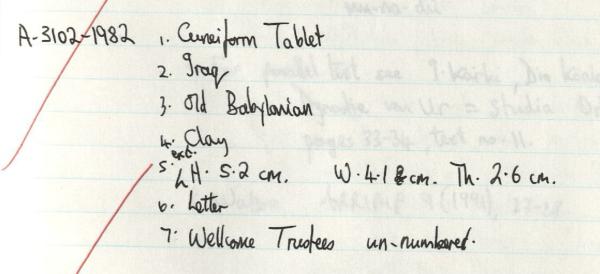 A-3102-1982 1. Cuneiform Tablet
2. Iraq
3. Old Babylonian
4. Clay
5. ext. H. 5.2 cm. W. 4.1 cm. Th. 2.6 cm.
6. Letter
7. Wellcome Trustees un-numbered.